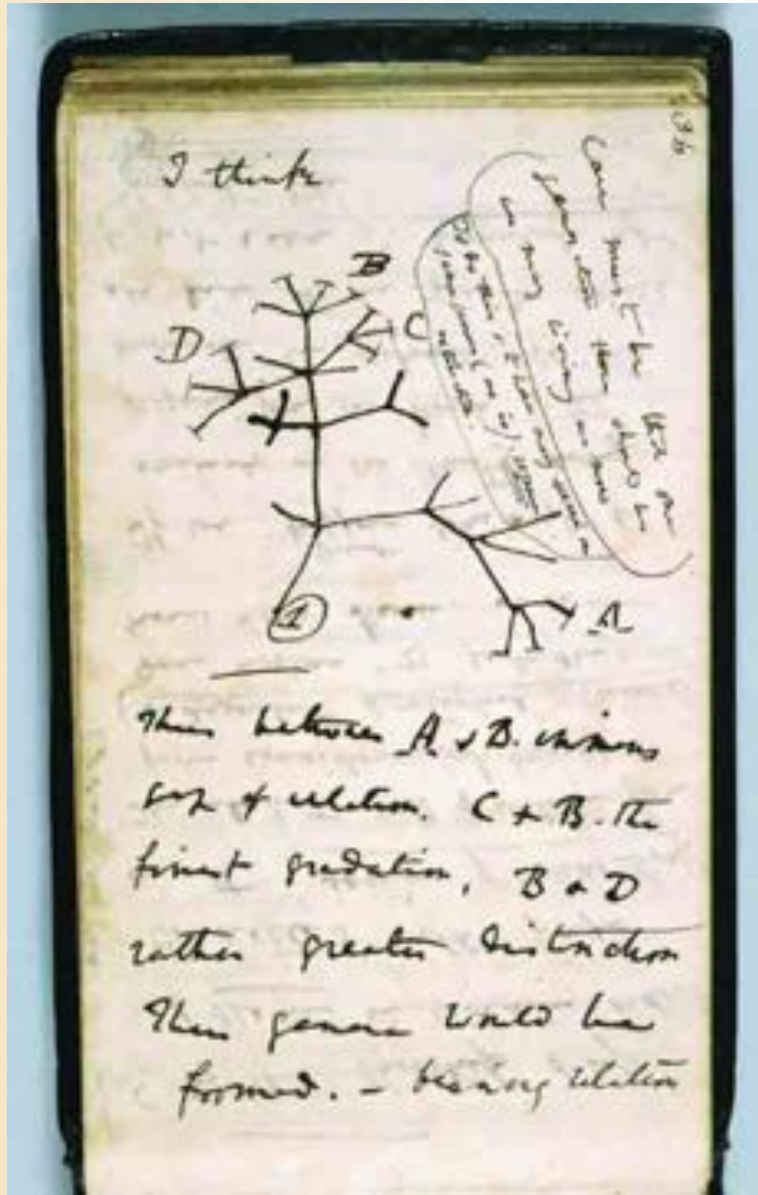 I think
B
D
C
1
A
Case must be that one
generation then should be
as many living as now
To do this & to have many species in
same genus (as is) requires
extinction
Thus between A & B. immens
gap of relation. C & B. The
finest gradation, B & D
rather greater distinction
Thus genera would be
formed. — bearing relation